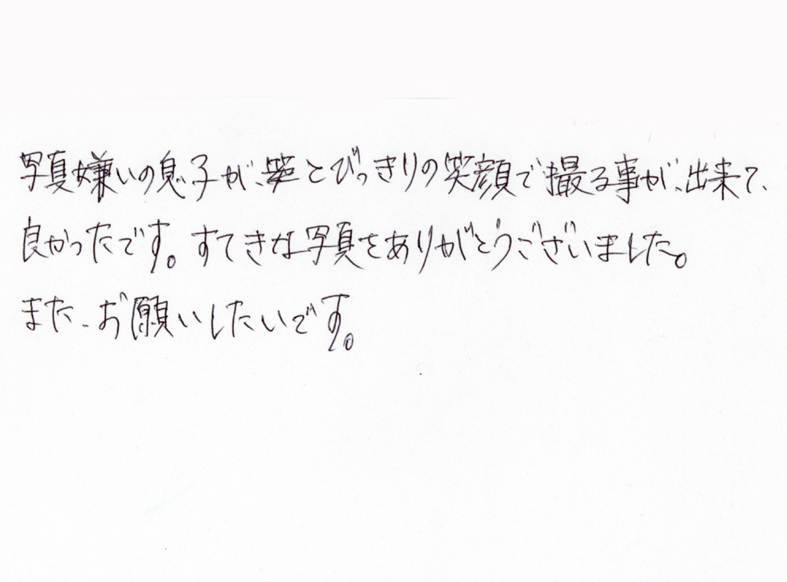 写真嫌いの息子が、とびっきりの笑顔で撮る事が、出来て、
良かったです。すてきな写真をありがとうございました。
また、お願いしたいです。